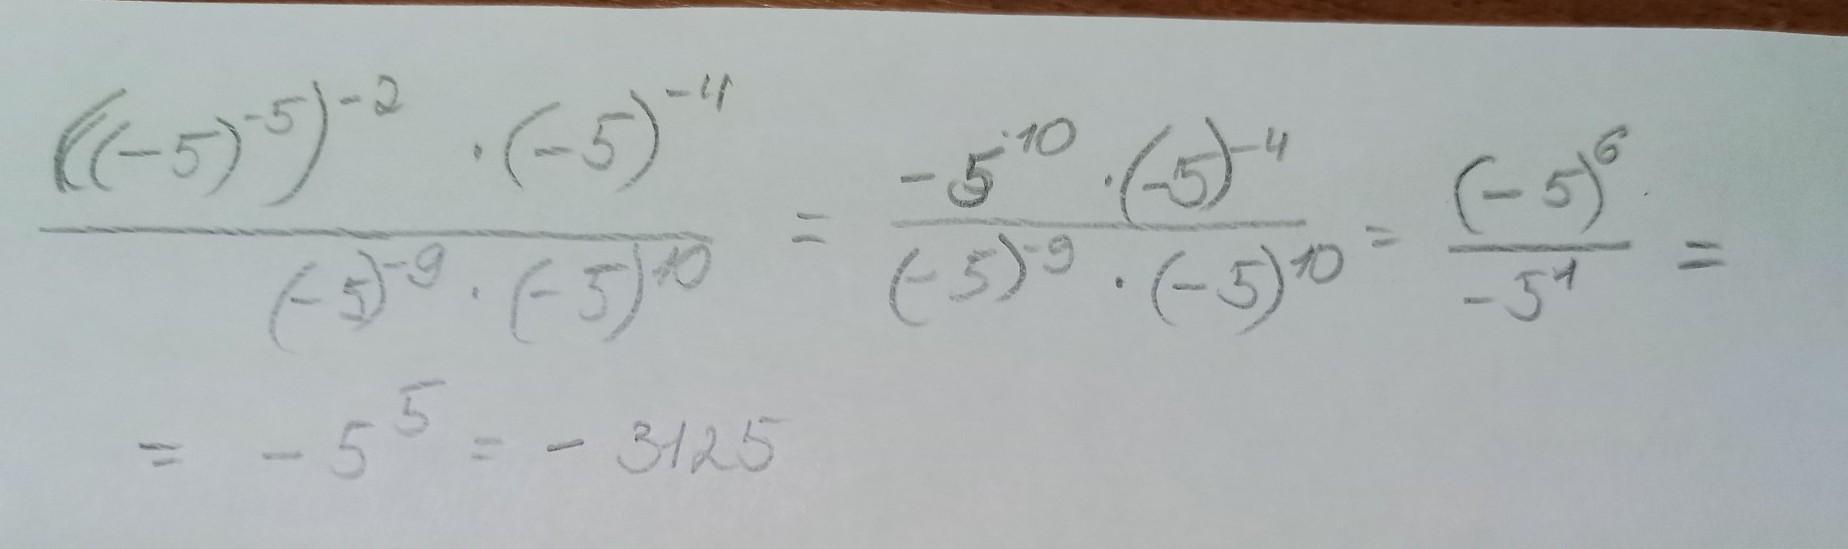 ((-5)^-5)^-2 · (-5)^-4 / (-5)^-9 · (-5)^10 = -5^10 · (-5)^-4 / (-5)^-9 · (-5)^10 = (-5)^6 / -5^1 =
= -5^5 = -3125